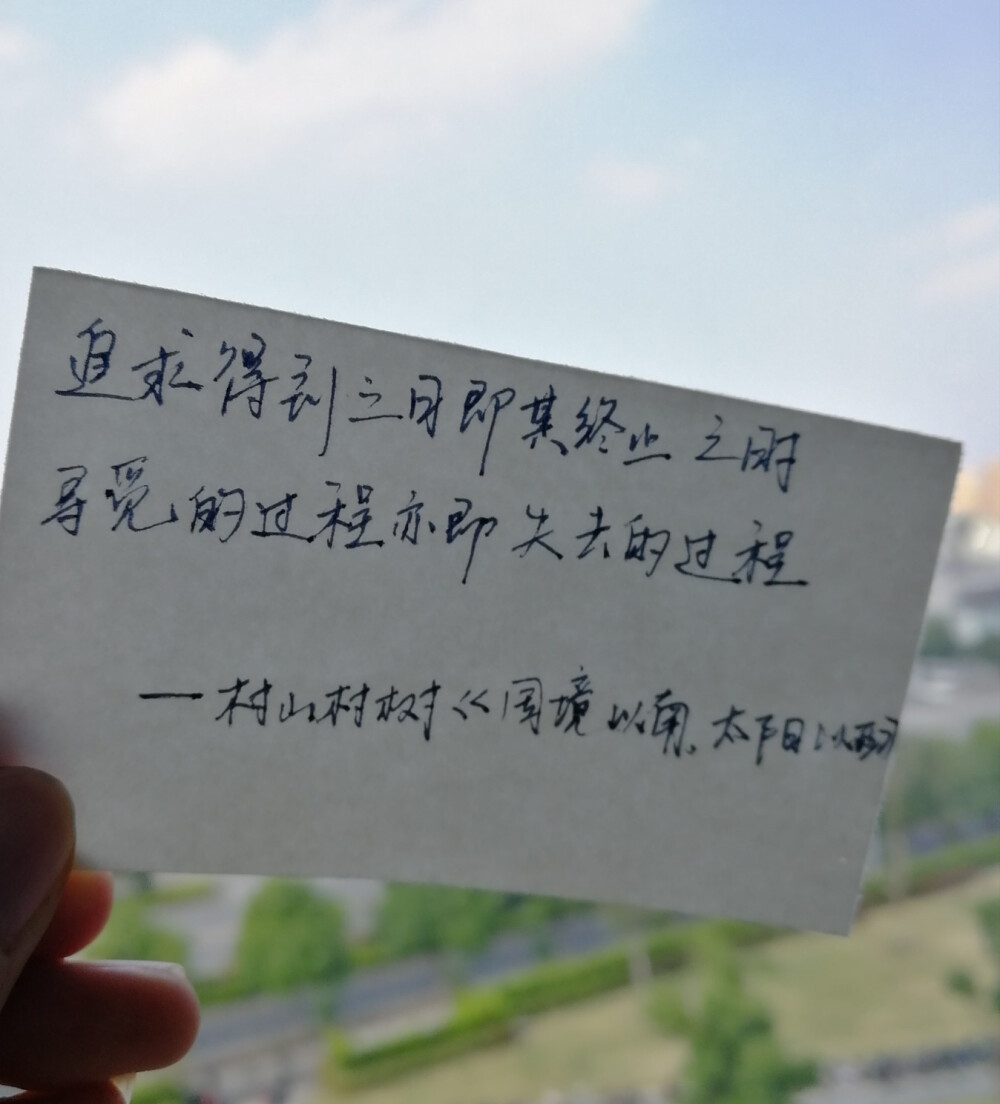 追求得到之日即其终止之时
寻觅的过程亦即失去的过程
一村山村树《国境以南、太阳以西》